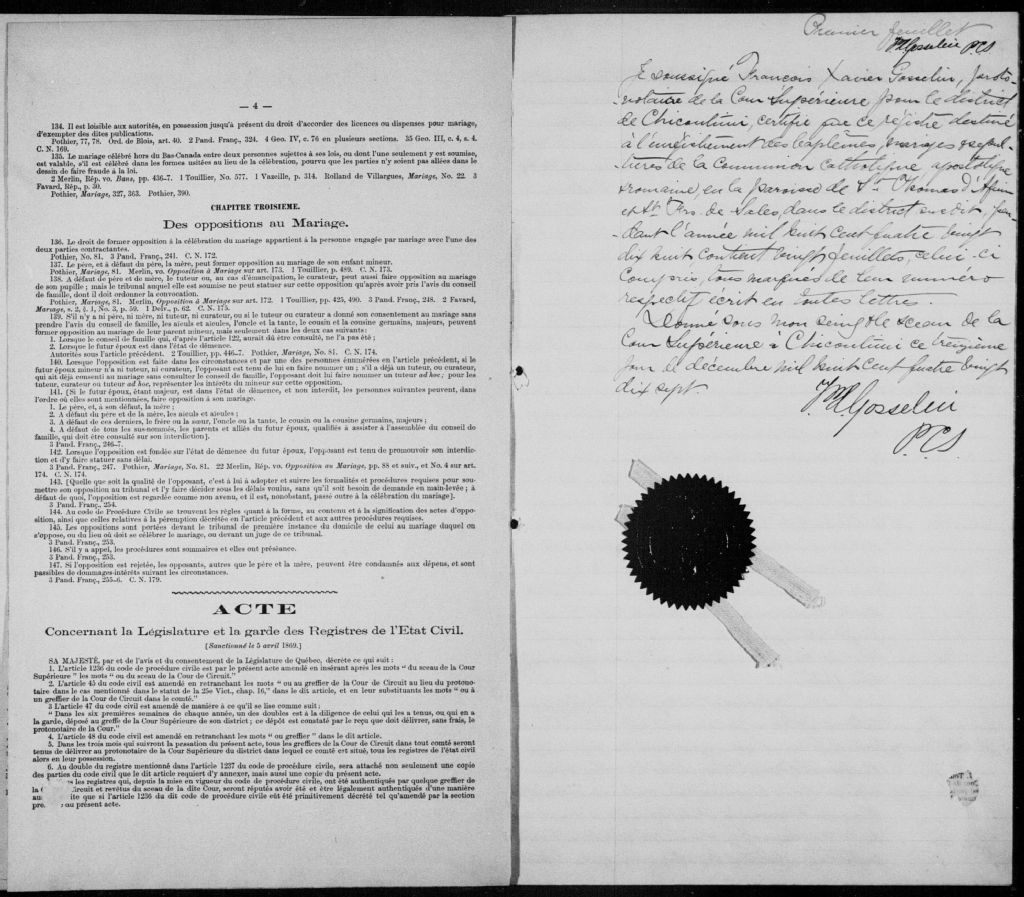 — 4 —
134. Il est loisible aux autorités, en possession jusqu'à présent du droit d'accorder des licences ou dispenses pour mariage,
d'exempter des dites publications.
Pothier, 77, 78. Ord. de Blois, art. 40. 2 Pand. Franç., 324. 4 Geo. IV, c. 76 en plusieurs sections. 35 Geo. III, c. 4, s. 4.
C. N. 169.
135. Le mariage célébré hors du Bas-Canada entre deux personnes sujettes à ses lois, ou dont l'une seulement y est soumise,
est valable, s'il est célébré dans les formes usitées au lieu de la célébration, pourvu que les parties n'y soient pas allées dans le
dessein de faire fraude à la loi.
2 Merlin, Rép. vo. Bans, pp. 436-7. 1 Touillier, No. 577. 1 Vazeille, p. 314. Rolland de Villargues, Mariage, No. 22. 3
Favard, Rép., p. 30.
Pothier, Mariage, 327, 363. Pothier, 390.
CHAPITRE TROISIEME.
Des oppositions au Mariage.
136. Le droit de former opposition à la célébration du mariage appartient à la personne engagée par mariage avec l'une des
deux parties contractantes.
Pothier, No. 81. 3 Pand. Franç., 241. C. N. 172.
137. Le père, et à défaut du père, la mère, peut former opposition au mariage de son enfant mineur.
Pothier, Mariage, 81. Merlin, vo. Opposition à Mariage sur art. 173. 1 Touillier, p. 489. C. N. 173.
138. A défaut de père et de mère, le tuteur ou, au cas d'émancipation, le curateur, peut aussi faire opposition au mariage
de son pupille ; mais le tribunal auquel elle est soumise ne peut statuer sur cette opposition qu'après avoir pris l'avis du conseil
de famille, dont il doit ordonner la convocation.
Pothier, Mariage, 81. Merlin, Opposition à Mariage sur art. 172. 1 Touillier, pp. 425, 490. 3 Pand. Franç., 248. 2 Favard,
Mariage, s. 2, § 1, No. 3, p. 59. 1 Delv., p. 62. C. N. 175.
139. S'il n'y a ni père, ni mère, ni tuteur, ni curateur, ou si le tuteur ou curateur a donné son consentement au mariage sans
prendre l'avis du conseil de famille, les aïeuls et aïeules, l'oncle et la tante, le cousin et la cousine germains, majeurs, peuvent
former opposition au mariage de leur parent mineur, mais seulement dans les deux cas suivants :
1. Lorsque le conseil de famille qui, d'après l'article 122, aurait dû être consulté, ne l'a pas été ;
2. Lorsque le futur époux est dans l'état de démence.
Autorités sous l'article précédent. 2 Touillier, pp. 446-7. Pothier, Mariage, No. 81. C. N. 174.
140. Lorsque l'opposition est faite dans les circonstances et par une des personnes énumérées en l'article précédent, si le
futur époux mineur n'a ni tuteur, ni curateur, l'opposant est tenu de lui en faire nommer un ; s'il a déjà un tuteur, ou curateur,
qui ait déjà consenti au mariage sans consulter le conseil de famille, l'opposant doit lui faire nommer un tuteur ad hoc ; pour les
tuteur, curateur ou tuteur ad hoc, représenter les intérêts du mineur sur cette opposition.
141. [Si le futur époux, étant majeur, est dans l'état de démence, et non interdit, les personnes suivantes peuvent, dans
l'ordre où elles sont mentionnées, faire opposition à son mariage.
1. Le père, et, à son défaut, la mère ;
2. A défaut du père et de la mère, les aïeuls et aïeules ;
3. A défaut de ces derniers, le frère ou la sœur, l'oncle ou la tante, le cousin ou la cousine germains, majeurs ;
4. A défaut de tous les sus-nommés, les parents et alliés du futur époux, qualifiés à assister à l'assemblée du conseil de
famille, qui doit être consulté sur son interdiction].
3 Pand. Franç., 246-7.
142. Lorsque l'opposition est fondée sur l'état de démence du futur époux, l'opposant est tenu de promouvoir son interdic-
tion et d'y faire statuer sans délai.
3 Pand. Franç., 247. Pothier, Mariage, No. 81. 22 Merlin, Rép. vo. Opposition au Mariage, pp. 88 et suiv., et No. 4 sur art.
174. C. N. 174.
143. [Quelque soit la qualité de l'opposant, c'est à lui à adopter et suivre les formalités et procédures requises pour sou-
mettre son opposition au tribunal et l'y faire décider sous les délais voulus, sans qu'il soit besoin de demande en main-levée ; à
défaut de quoi, l'opposition est regardée comme non avenu, et il est, nonobstant, passé outre à la célébration du mariage].
3 Pand. Franç., 254.
144. Au code de Procédure Civile se trouvent les règles quant à la forme, au contenu et à la signification des actes d'oppo-
sition, ainsi que celles relatives à la péremption décrétée en l'article précédent et aux autres procédures requises.
145. Les oppositions sont portées devant le tribunal de première instance du domicile de celui au mariage duquel on
s'oppose, ou du lieu où doit se célébrer le mariage, ou devant un juge de ce tribunal.
3 Pand. Franç., 253.
146. S'il y a appel, les procédures sont sommaires et elles ont préséance.
3 Pand. Franç., 253.
147. Si l'opposition est rejetée, les opposants, autres que le père et la mère, peuvent être condamnés aux dépens, et sont
passibles de dommages-intérêts suivant les circonstances.
3 Pand. Franç., 255-6. C. N. 179.
ACTE
Concernant la Législature et la garde des Registres de l'Etat Civil.
[Sanctionné le 5 avril 1869.]
SA MAJESTÉ, par et de l'avis et du consentement de la Législature de Québec, décrète ce qui suit :
1. L'article 1236 du code de procédure civile est par le présent acte amendé en insérant après les mots “ du sceau de la Cour
Supérieure ” les mots “ ou du sceau de la Cour de Circuit.”
2. L'article 45 du code civil est amendé en retranchant les mots “ ou au greffier de la Cour de Circuit au lieu du protono-
taire dans le cas mentionné dans le statut de la 25e Vict., chap. 16,” dans le dit article, et en leur substituants les mots “ ou à
un greffier de la Cour de Circuit dans le comté.”
3 L'article 47 du code civil est amendé de manière à ce qu'il se lise comme suit :
“ Dans les six premières semaines de chaque année, un des doubles est à la diligence de celui qui les a tenus, ou qui en a
la garde, déposé au greffe de la Cour Supérieure de son district ; ce dépôt est constaté par le reçu que doit délivrer, sans frais, le
protonotaire de la Cour.”
4. L'article 48 du code civil est amendé en retranchant les mots “ ou greffier ” dans le dit article.
5. Dans les trois mois qui suivront la passation du présent acte, tous les greffiers de la Cour de Circuit dans tout comté seront
tenus de délivrer au protonotaire de la Cour Supérieure du district dans lequel ce comté est situé, tous les registres de l'état civil
alors en leur possession.
6. Au double du registre mentionné dans l'article 1237 du code de procédure civile, sera attaché non seulement une copie
des parties du code civil que le dit article requiert d'y annexer, mais aussi une copie du présent acte.
les registres qui, depuis la mise en vigueur du code de procédure civile, ont été authentiqués par quelque greffier de
la C ircuit et revêtus du sceau de la dite Cour, seront réputés avoir été et être légalement authentiqués d'une manière
au ite que si l'article 1236 du dit code de procédure civile eût été primitivement décrété tel qu'amendé par la section
pre au présent acte.
Premier feuillet
FXGosselin P.C.S
Je soussigné François Xavier Gosselin, proto-
-notaire de la Cour Supérieure pour le district
de Chicoutimi, certifie que ce registre destiné
à l'enrégistrement des baptêmes, mariages & sépul-
-tures de la Communion Catholique apostolique
& romaine, en la paroisse de St. Thomas d'Aquin
et St. Frs. de Sales, dans le district susdit, pen-
dant l'année mil huit cent quatre vingt
dix huit contient vingt feuillets, celui-ci
compris, tous marqués de leur numéro
respectif écrit en toutes lettres.
Donné sous mon seing & le sceau de la
Cour Supérieure à Chicoutimi ce treizième
jour de décembre mil huit cent quatre vingt
dix sept.
FXGosselin
P.C.S.